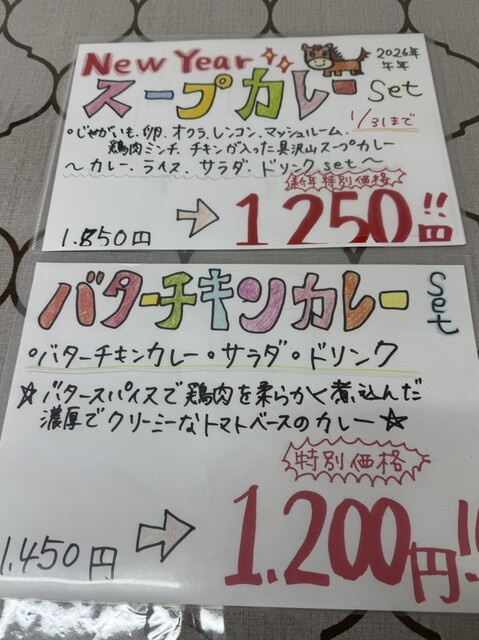 New Year
2026年
午年
スープカレー Set
1/31まで
・じゃがいも、卵、オクラ、レンコン、マッシュルーム、
鶏肉ミンチ、チキンが入った具沢山スープカレー
〜カレー、ライス、サラダ、ドリンクset〜
新年特別価格
1.850円 → 1250円!!
バターチキンカレー Set
・バターチキンカレー・サラダ・ドリンク
☆バタースパイスで鶏肉を柔らかく煮込んだ
濃厚でクリーミーなトマトベースのカレー☆
特別価格
1.450円 → 1.200円!!